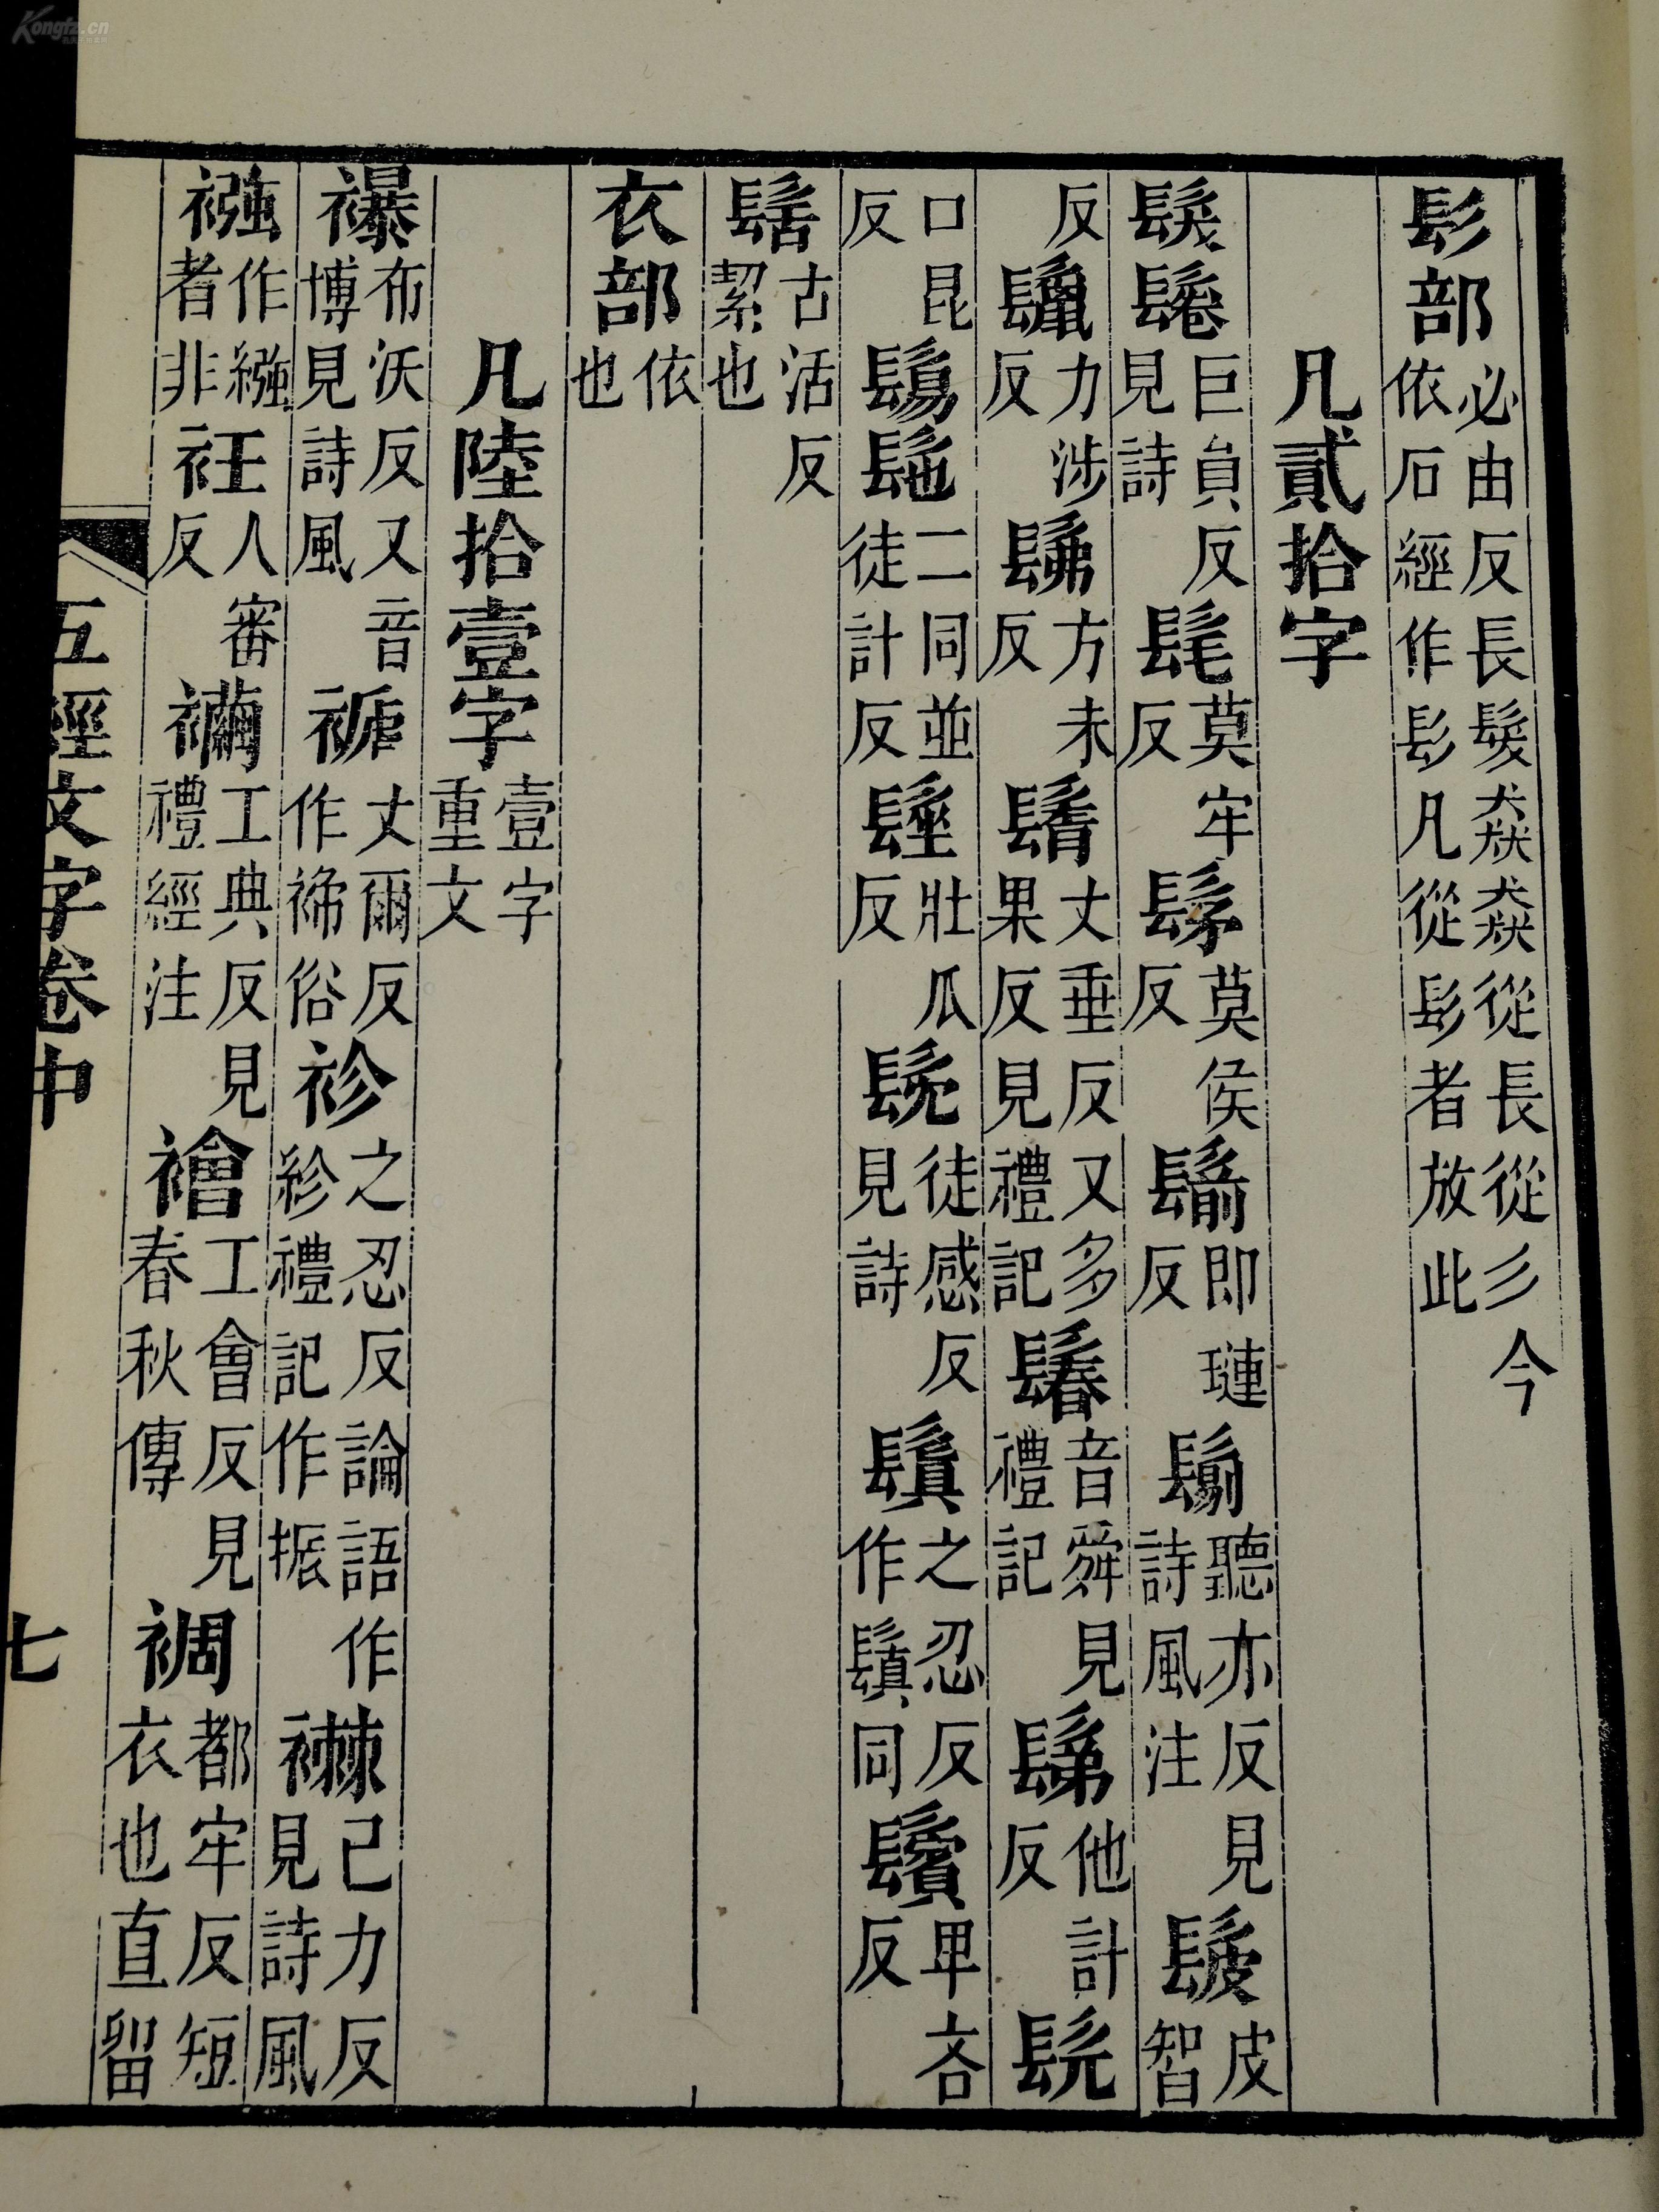 髟部必由反長髮猋猋從長從彡今依石經作髟凡從髟者放此
凡貳拾字
髮鬈巨員反見詩髦莫牢反髳莫侯反鬋即璉反聽亦反見詩風注髲皮智
反鬣力涉反髴方未反鬌丈垂反又多果反見禮記鬊音舜見禮記鬀他計反髡
口昆反鬄髢二同並徒計反髽壯瓜反髧徒感反見詩鬒之忍反作鬒同鬢卑吝反
髺古活反絜也
衣部依也
凡陸拾壹字壹字重文
襮布沃反又音博見詩風褫丈爾反作禘俗袗之忍反論語作紾禮記作振襋己力反見詩風
襁作繈者非衽人審反襺工典反見禮經注襘工會反見春秋傳裯都牢反短衣也直留
五經文字卷中 七
Kongfz.cn